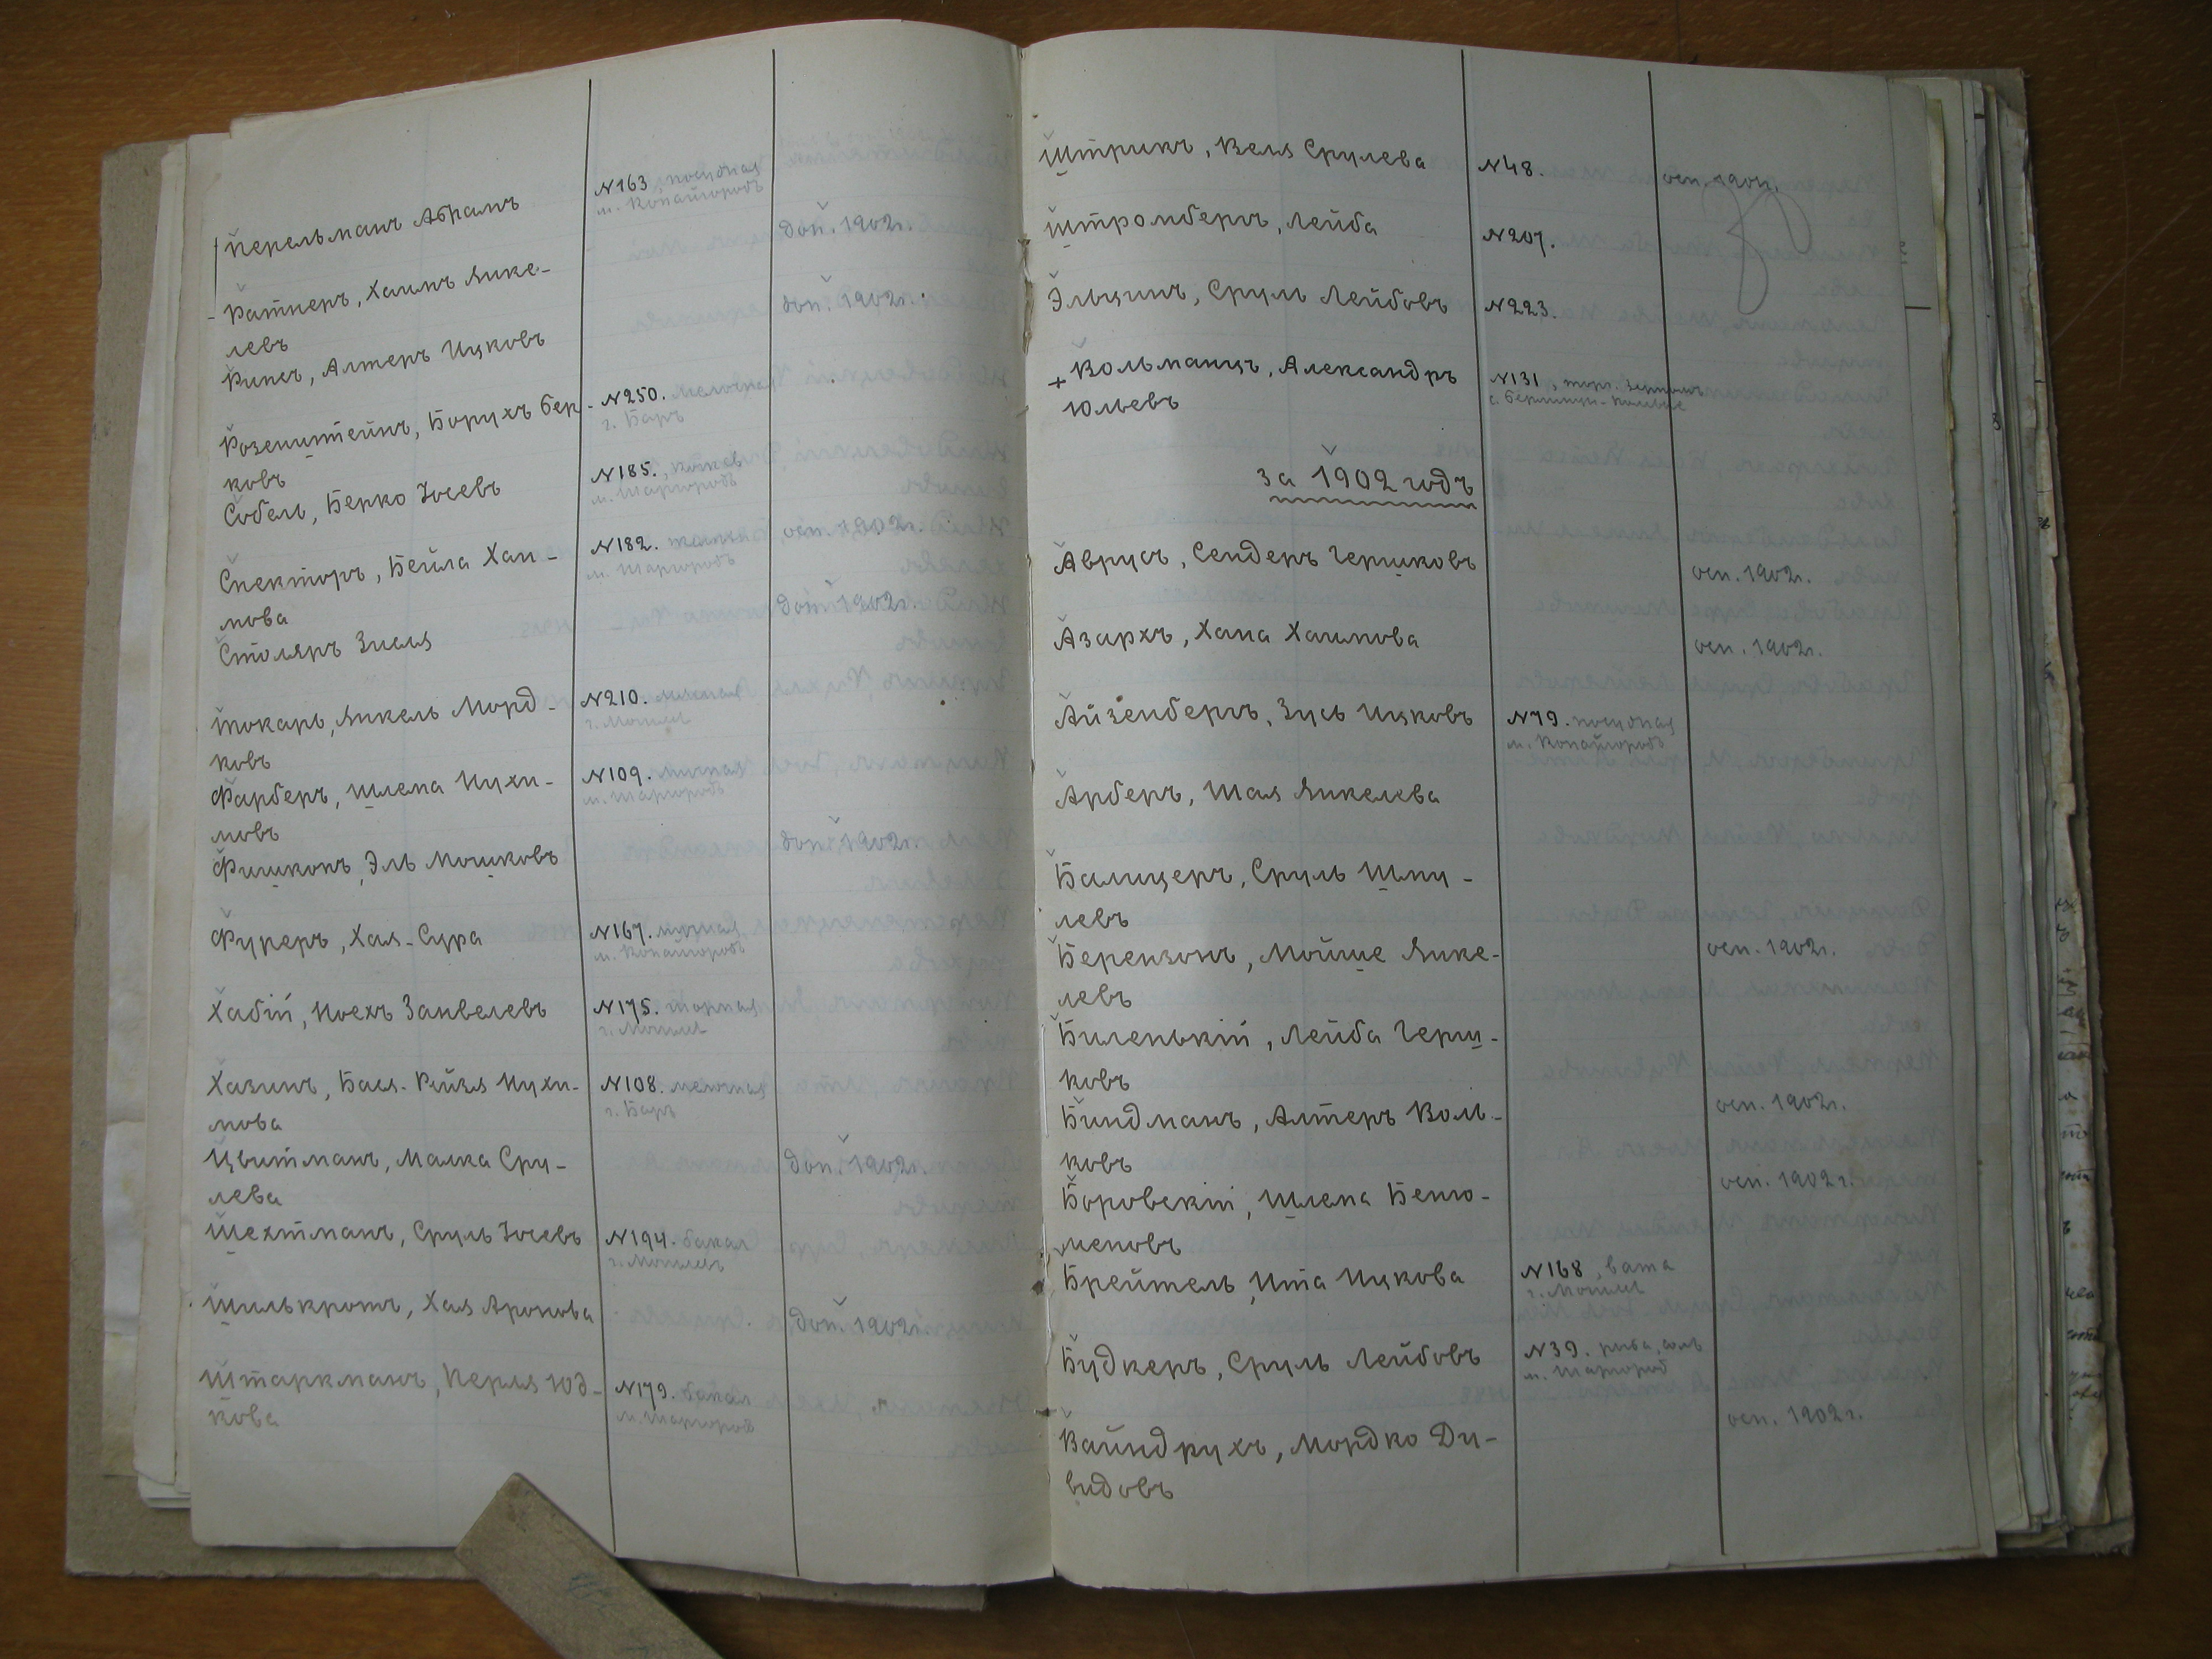 Перельманъ Абрамъ
N163, посудная
м. Копайгородъ
доп. 1902г.
Ратнеръ, Хаимъ Янке-
левъ
доп. 1902г.
Рипсъ, Алтеръ Ицковъ
Розенштейнъ, Борухъ Бер-
ковъ
N250. мелочная
г. Баръ
Собель, Берко Іосевъ
N185.
м. Шаргородъ
Спекторъ, Бейла Хаи-
мова
N182.
м. Шаргородъ
оси. 1902г.
Столяръ Зисля
доп. 1902г.
Токарь, Янкель Морд-
ковъ
N210.
г. Могилев
Фарберъ, Шлема Нухи-
мовъ
N109. мучная
м. Шаргородъ
Фишконъ, Эль Мошковъ
доп. 1902г.
Фуреръ, Хая-Сура
N167. мучная
м. Копайгородъ
Хабій, Ноехъ Занвелевъ
N175.
г. Могилев
Хазинъ, Бася-Рейзя Нухи-
мова
N108. мелочная
г. Баръ
Цвитманъ, Малка Сру-
лева
доп. 1902г.
Шехтманъ, Сруль Іосевъ
N194. бакал
г. Могилевъ
Шилькротъ, Хая Аронова
доп. 1902г.
Штаркманъ, Перля Юд-
кова
N179. бакал
м. Шаргород
Штрикъ, Веля Срулева
N48.
оси. 1902г.
Штромбергъ, Лейба
N207.
Эльцинъ, Сруль Лейбовъ
N223.
+ Вольманцъ, Александръ
Юльевъ
N131, торг. зерномъ
за 1902 годъ
Аврусъ, Сендеръ Гершковъ
оси. 1902г.
Азархъ, Хана Хаимова
оси. 1902г.
Айзенбергъ, Зусь Ицковъ
N79. посудная
м. Копайгородъ
Арберъ, Шая Янкелева
Балицеръ, Сруль Шму-
левъ
Берензонъ, Мойше Янке-
левъ
оси. 1902г.
Биленькій, Лейба Герш-
ковъ
Биндманъ, АлтеръВоль-
ковъ
оси. 1902г.
Боровскій, Шлема Беню-
меновъ
оси. 1902г.
Брейтель, Ита Ицкова
N168, вата
г. Могилев
Будкеръ, Сруль Лейбовъ
N39. рыба, соль
м. Шаргород
Вайндрухъ, Мордко Ду-
видовъ
оси. 1902г.